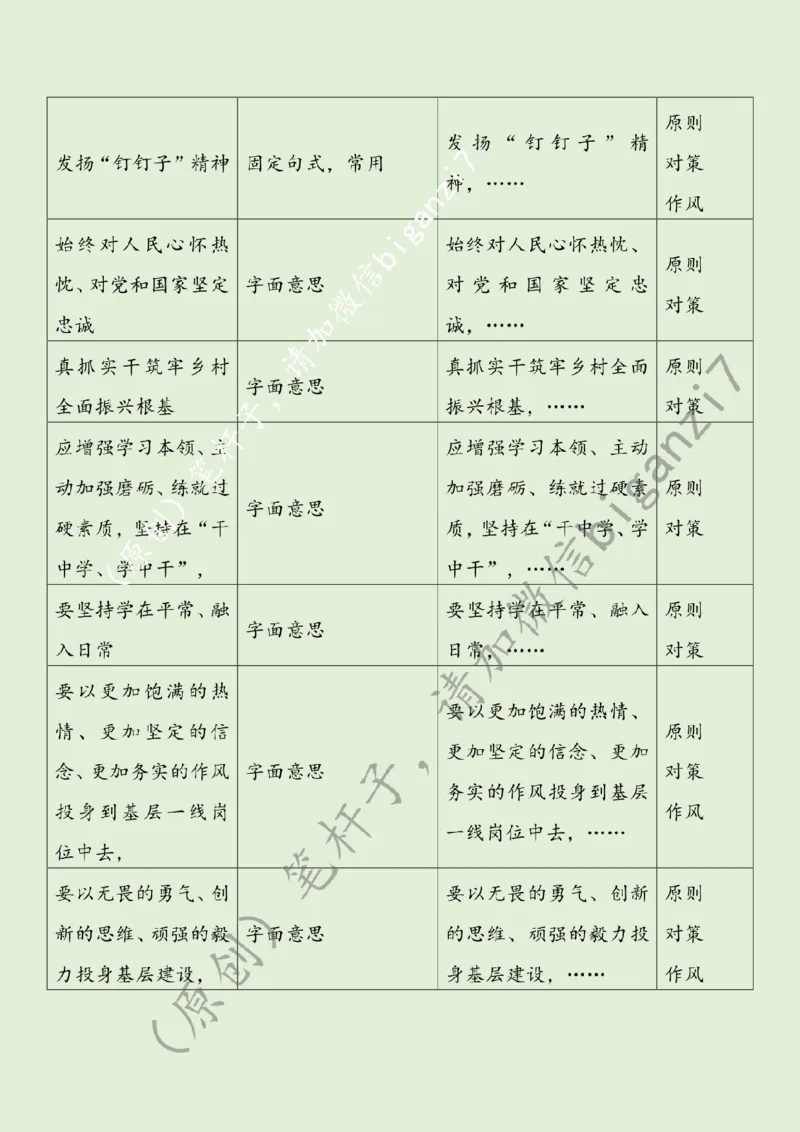 发扬“钉钉子”精神
固定句式，常用
发扬“钉钉子”精
神，……
原则
对策
作风
始终对人民心怀热
忱、对党和国家坚定
忠诚
字面意思
始终对人民心怀热忱、
对党和国家坚定忠
诚，……
原则
对策
真抓实干筑牢乡村
全面振兴根基
字面意思
真抓实干筑牢乡村全面
振兴根基，……
原则
对策
应增强学习本领、主
动加强磨砺、练就过
硬素质，坚持在“干
中学、学中干”，
字面意思
应增强学习本领、主动
加强磨砺、练就过硬素
质，坚持在“干中学、学
中干”，……
原则
对策
要坚持学在平常、融
入日常
字面意思
要坚持学在平常、融入
日常，……
原则
对策
要以更加饱满的热
情、更加坚定的信
念、更加务实的作风
投身到基层一线岗
位中去，
字面意思
要以更加饱满的热情、
更加坚定的信念、更加
务实的作风投身到基层
一线岗位中去，……
原则
对策
作风
要以无畏的勇气、创
新的思维、顽强的毅
力投身基层建设，
字面意思
要以无畏的勇气、创新
的思维、顽强的毅力投
身基层建设，……
原则
对策
作风
（原创）笔杆子，请加微信biganzi7
（原创）笔杆子，请加微信biganzi7